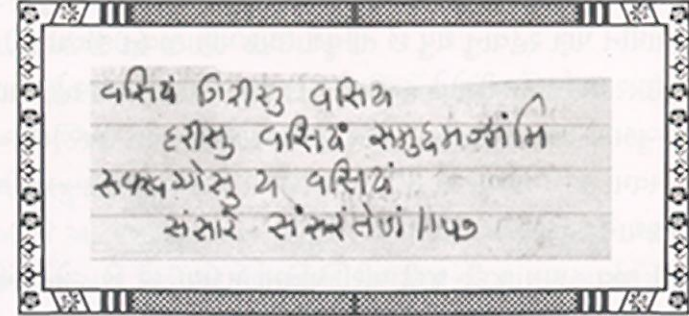 वसियं गिरीसु वसियं
दरीसु वसियं समुद्दमज्झंमि
रुक्खग्गेसु य वसियं
संसारे संसरंतेणं ॥५७